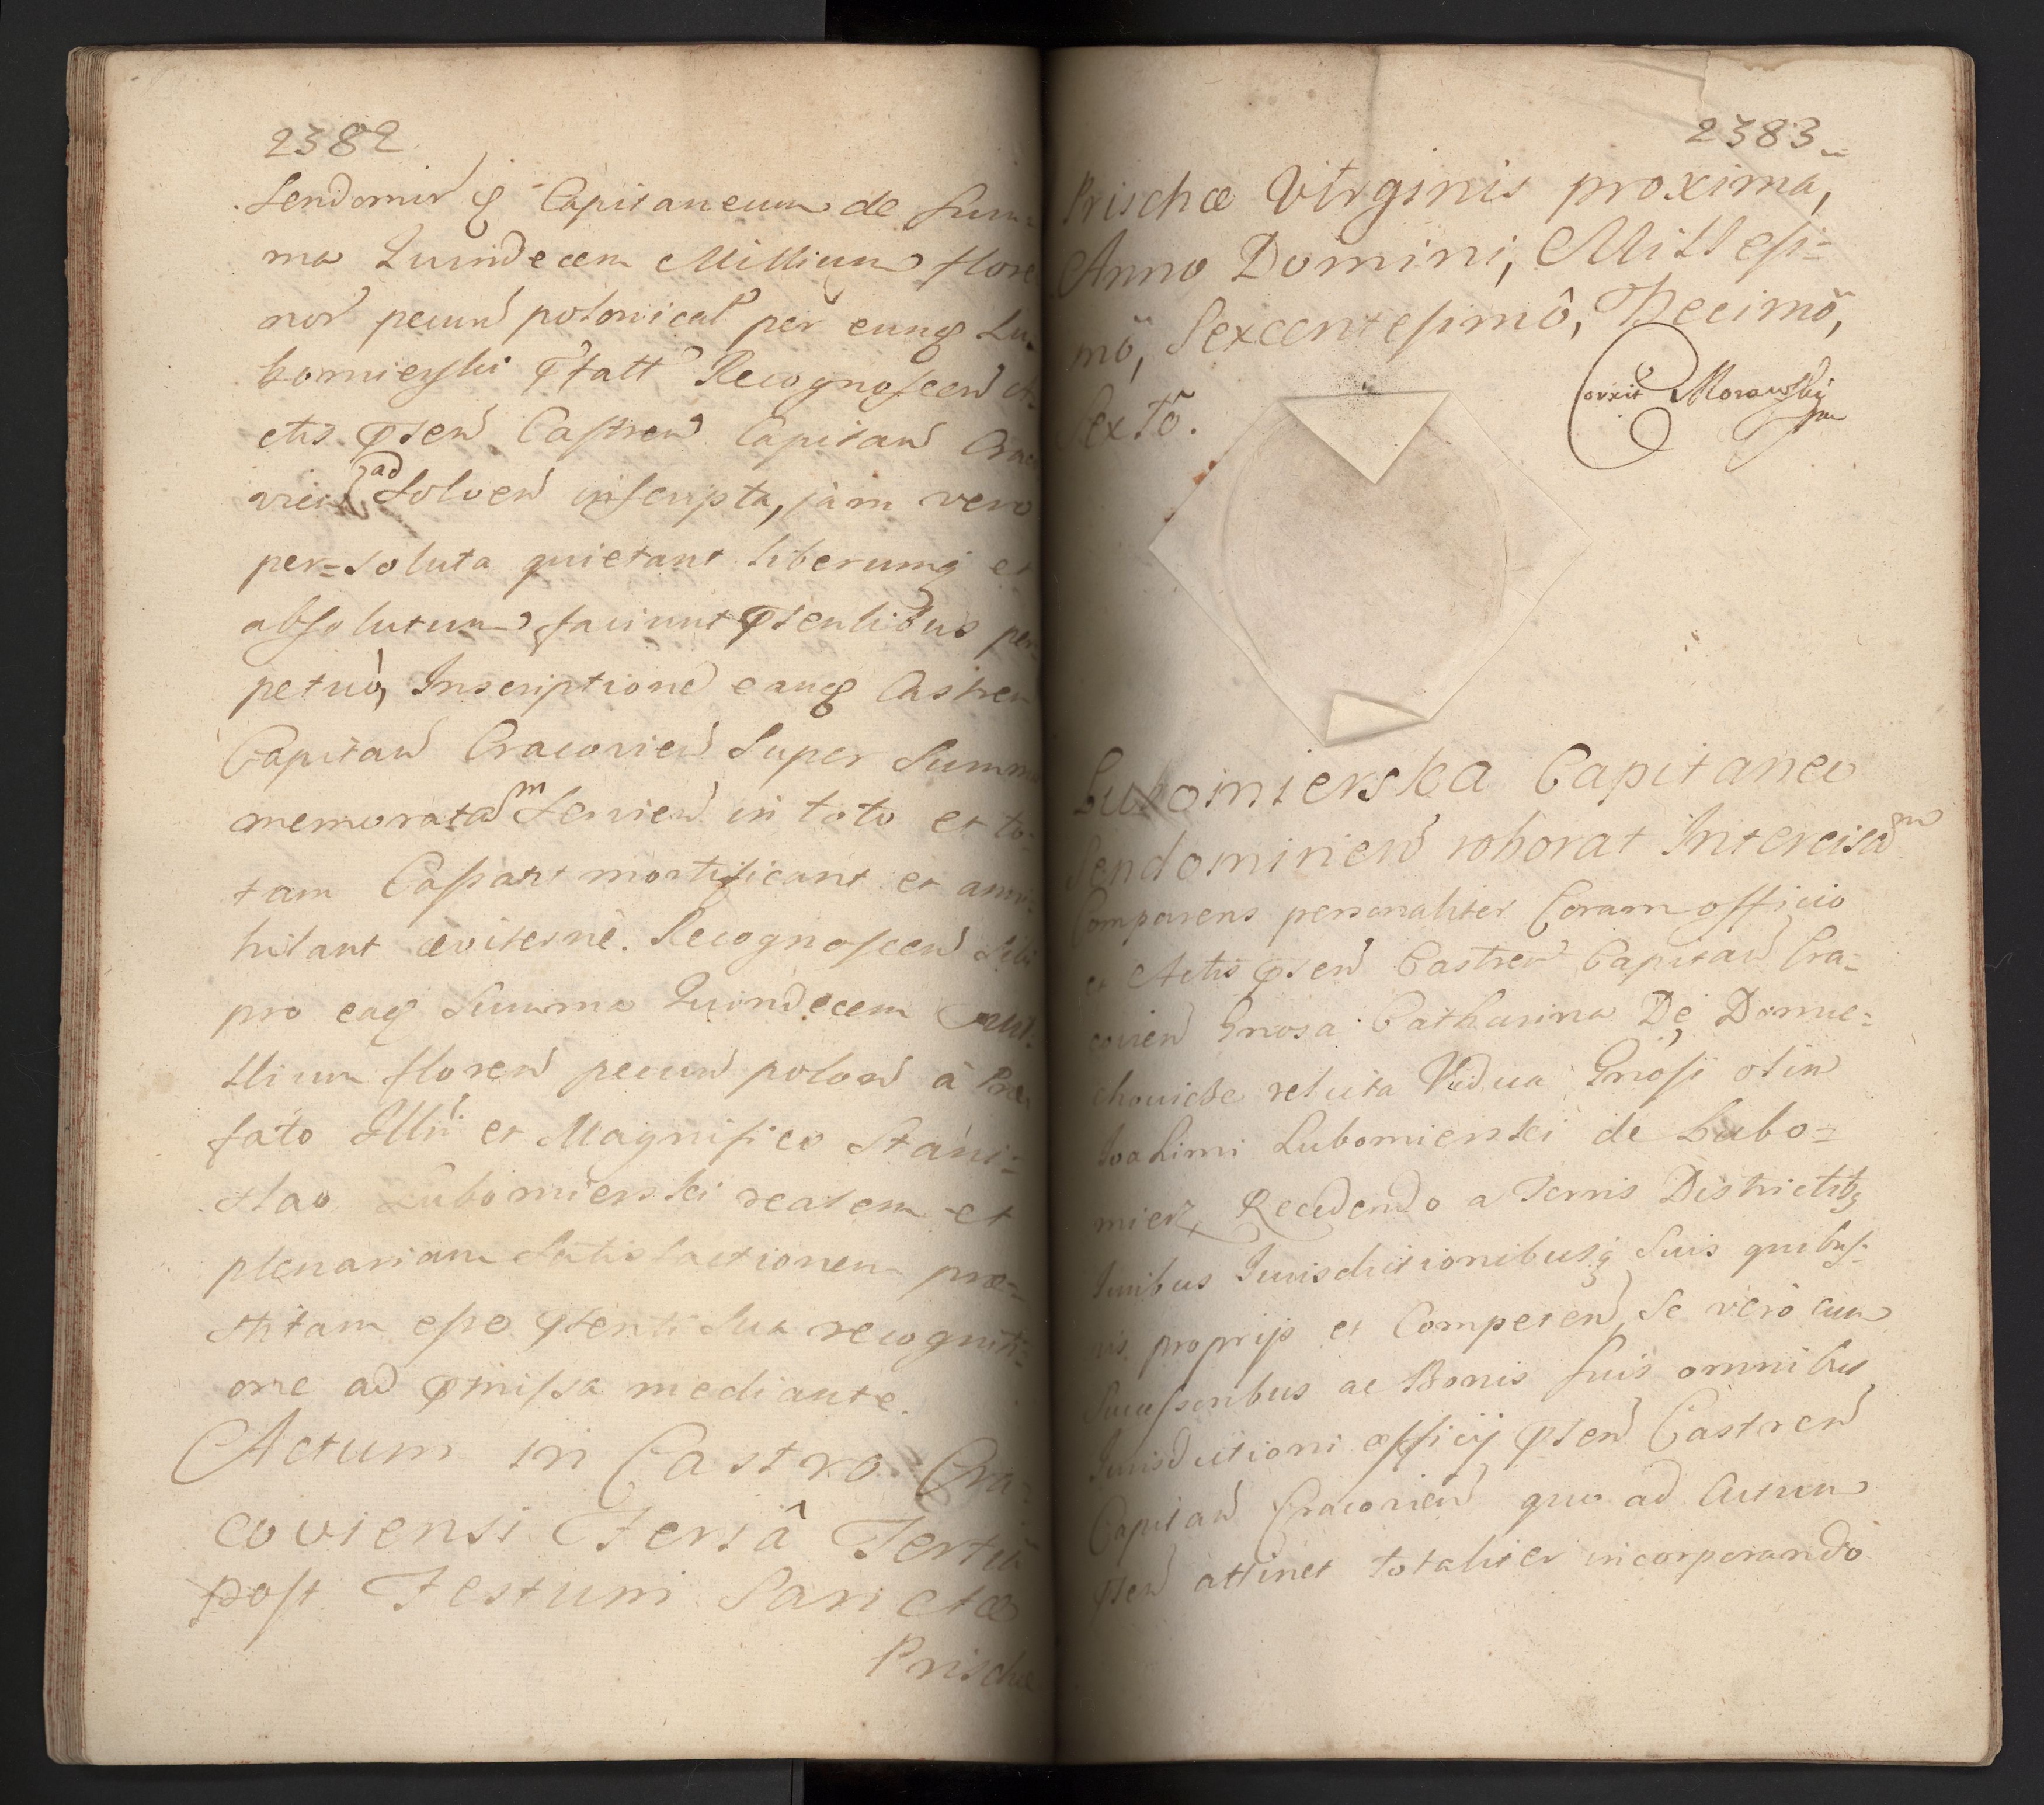 2382
Sendomir Capitaneum de Sum=
ma Quindecem Millium flore
nor pecun polonical per eunq Lu=
bomierski Recognoscen
ctis pnsen Castren Capitan Crac
vien ad Solven inscripta, jam vero
per=soluta quietant liberumq et
absolutum faciunt pnsentibus per=
petuò, Inscriptione eanq Castren
Capitan Cracovien Super Summ
memoratam Servien in toto et to=
tam Cassant mortificant et anni=
hilant æviternè. Recognoscen Sibi
pro eaq Summa Quindecem Mil=
llium floren pecun polon à Præ
fato Illri et Magnifico Stani=
slao Lubomierski realem et
plenariam Satisfactionem præ=
stitam esse pnsenti Sua recogniti=
one ad pmissa mediante.
Actum in Castro Cra=
coviensi Feriâ Tertiâ
post Festum Sanctæ
Prischæ
2383
Prischæ Virginis proxima,
Anno Domini, Millesi=
mô, Sexcentesimô, Decimô,
Sextô.
Corrit Morawsky
Lubomierska Capitaneo
Sendomirien roborat Intercisam
Comparens personaliter Coram officio
et Actis pnsen Castren Capitan Cra=
covien Gnosa Catharina De Domie=
chowicze relicta Vidua Gnosi olim
Joachimi Lubomierski de Lubo=
mierz, Recedendo a Terris Districtibq
Juribus Jurisdictionibusq Suis quibus=
vis proprijs et Competen, Se verò cum
Successoribus ac Bonis Suis omnibus
Jurisdictioni officij pnsen Castren
Capitan Cracovien quo ad Actum
pnsen attinet totaliter incorporando